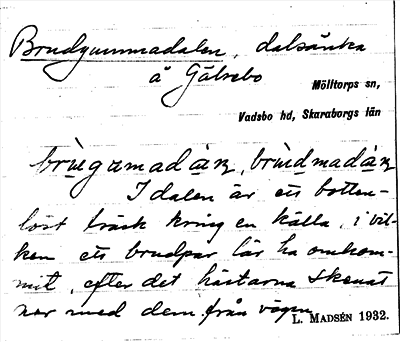 Brudgummadalen, dalsänka
å Gälsebo
Mölltorps sn,
Vadsbo hd, Skaraborgs län
I dalen är ett botten-
löst träsk kring en källa, i vil-
ken ett brudpar lär ha omkom-
mit, efter det hästarna skenat
ner med dem från vägen
L. MADSÉN 1932.